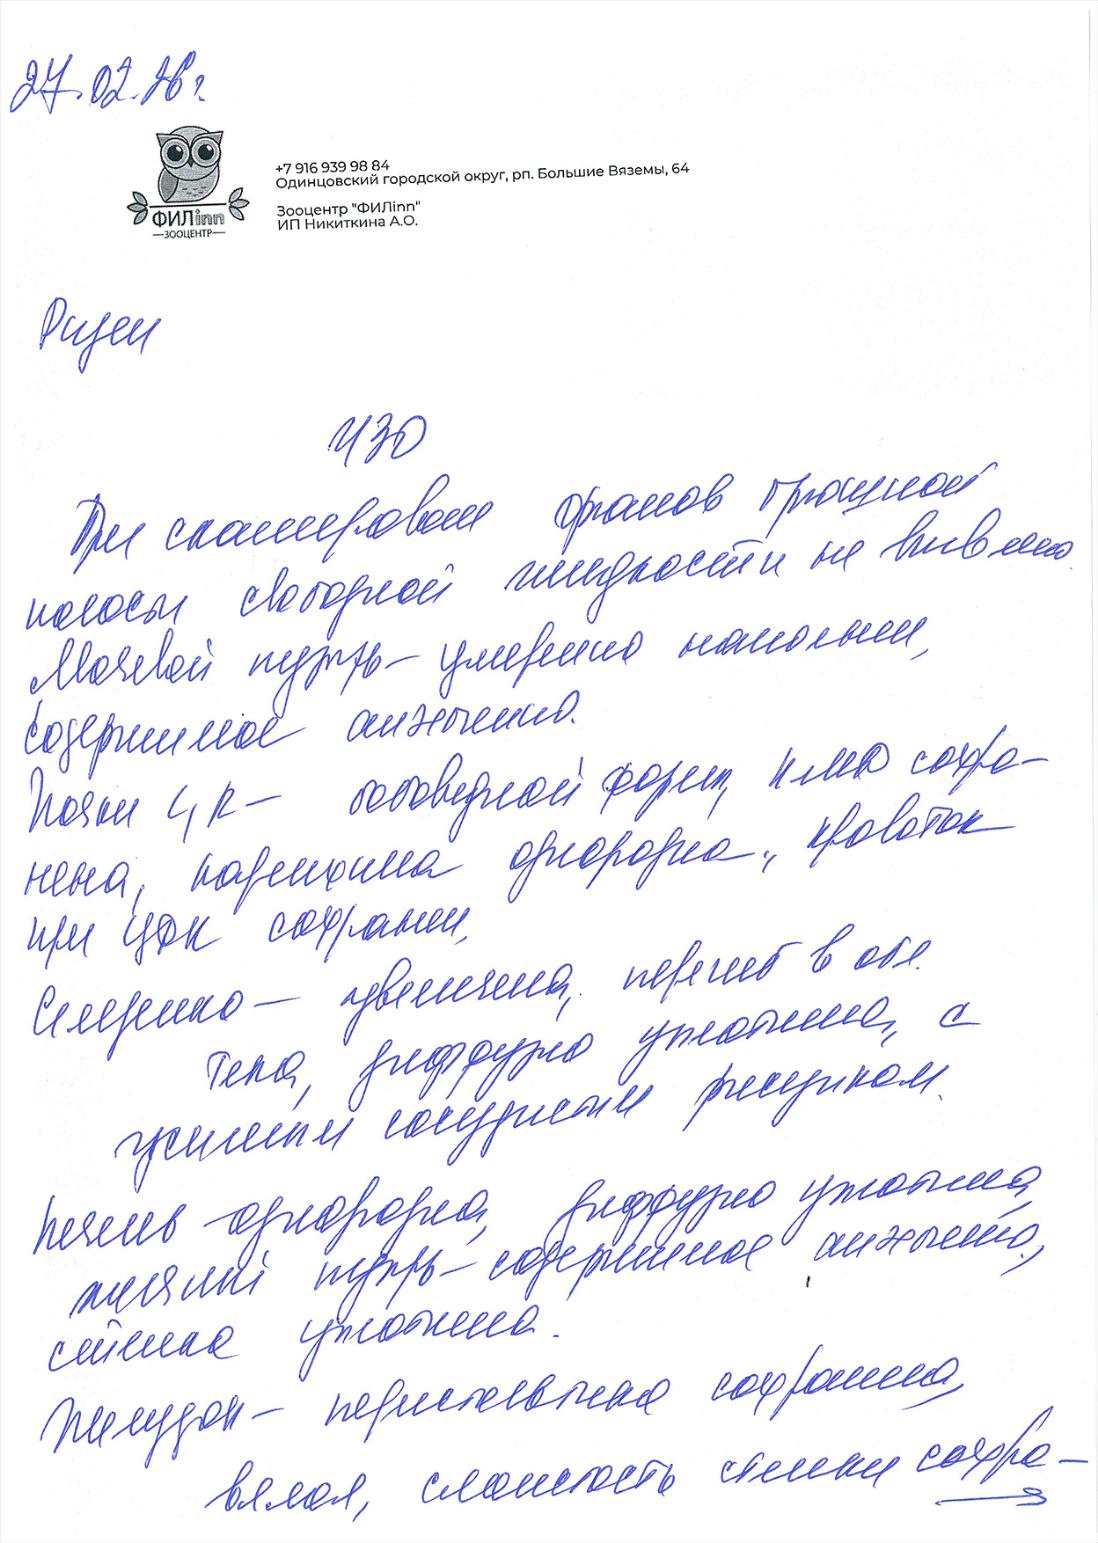 27.02.26г.
+7 916 939 98 84
Одинцовский городской округ, рп. Большие Вяземы, 64
ФИЛinn
Зооцентр "ФИЛinn"
—ЗООЦЕНТР—
ИП Никиткина А.О.
УЗО
При сканировании органов брюшной
полости свободной жидкости не выявлено.
Мочевой пузырь – умеренно наполнен,
содержимое анэхогенно.
Почки L, R – бобовидной формы, КМД сохра-
нена, паренхима однородна, кровоток
при ЦДК сохранен,
Селезенка – увеличена, перегиб в обл.
тела, диффузно уплотнена, с
усиленным сосудистым рисунком.
Печень – однородна, диффузно уплотнена,
желчный пузырь – содержимое анэхогенно,
стенка уплотнена.
Желудок – перистальтика сохранена,
вялая, слоистость стенки сохра-